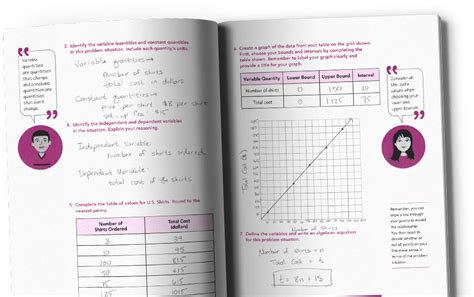 3. Identify the variable quantities and constant quantities
in this problem situation. Include each quantity's units.
Variable quantities →
Number of shirts
total cost in dollars
Constant quantities →
price per shirt $8 per shirt
set-up fee $15
Variable
quantities
are quantities
that change,
and constant
quantities are
quantities
that don't
change.
4. Identify the independent and dependent variables
in the situation. Explain your reasoning.
Independent Variable:
number of shirts ordered
Dependent Variable:
total cost of the shirts
5. Complete the table of values for U.S. Shirts. Round to the
nearest penny.
Number of
Shirts Ordered
Total Cost
(dollars)
3
39
10
95
100
815
50
415
75
615
6. Create a graph of the data from your table on the grid shown.
First, choose your bounds and intervals by completing the
table shown. Remember to label your graph clearly and
provide a title for your graph.
Variable Quantity
Lower Bound
Upper Bound
Interval
Number of shirts
0
150
10
Total cost
0
1125
75
Consider all
the data
values when
choosing your
lower and
upper bounds.
Total Cost ($)
Number of Shirts
7. Define the variables and write an algebraic equation
for this problem situation.
Number of shirts = n
Total Cost = t
t = 8n + 15
Remember, you can
draw a line through
your points to model
the relationship.
You then need to
decide whether or
not all points on your
line make sense in
terms of the
situation.